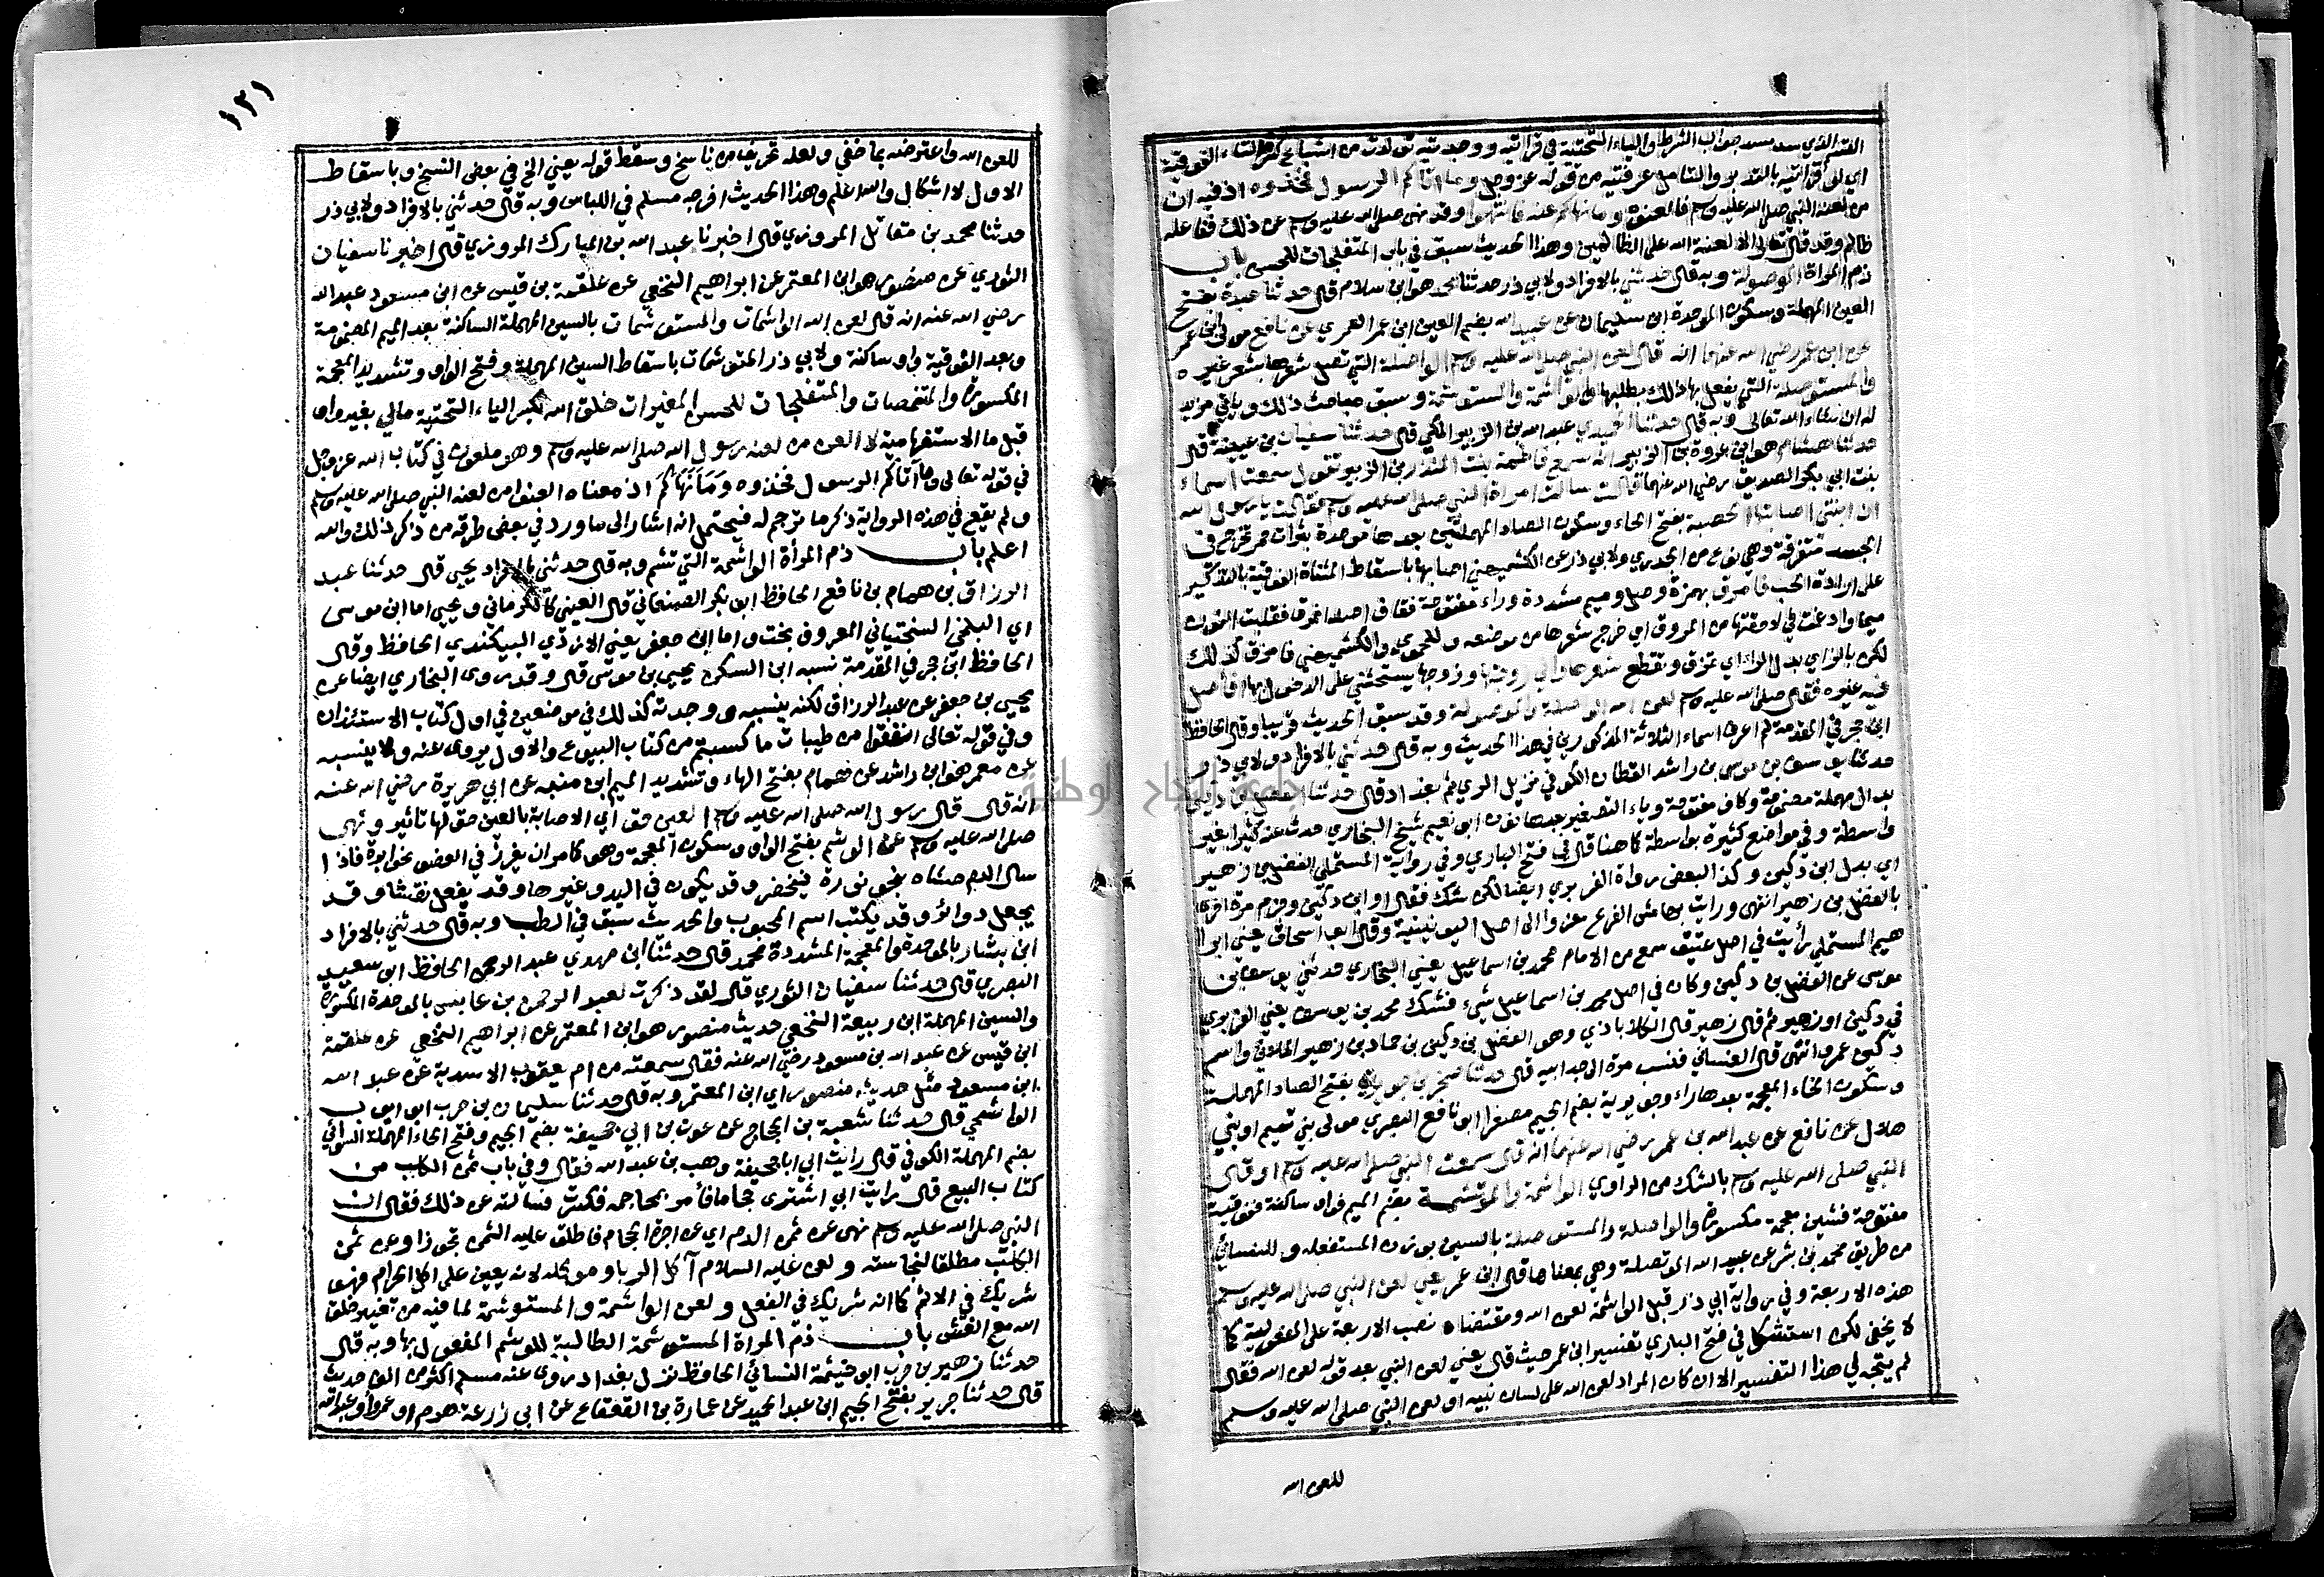 القسم الذي سد مسد جواب الشرط والياء التحتية في قرأتيه ووجدتيه تولدت من اشباع كسرة التاء الفوقية
اي لو قرأتيه بالتدبر والتأمل عرفتيه من قوله عز وجل وما اتاكم الرسول فخذوه اذ فيه ان
من لعنه النبي صلى الله عليه وسلم فالعنوه وما نهاكم عنه فانتهوا وقد نهى صلى الله عليه وسلم عن ذلك ففاعله
ظالم وقد قال تعالى الا لعنة الله على الظالمين وهذا الحديث سبق في باب المتفلجات للحسن باب
ذم المرأة الموصولة وبه قال حدثني بالافراد ولابي ذر حدثنا محمد هو ابن سلام قال حدثنا عبدة بفتح
العين المهملة وسكون الموحدة ابن سليمان عن عبيد الله بضم العين ابن عمر العمري عن نافع مولى ابن عمر
عن ابن عمر رضي الله عنهما انه قال لعن النبي صلى الله عليه وسلم الواصلة التي تصل شعرها بشعر غيره
والمستوصلة التي يفعل بها ذلك بطلبها والواشمة والمستوشمة وسبق مباحث ذلك وياتي مزيد
له ان شاء الله تعالى وبه قال حدثنا الحميدي عبد الله بن الزبير المكي قال حدثنا سفيان بن عيينة قال
حدثنا هشام هو ابن عروة بن الزبير انه سمع فاطمة بنت المنذر بن الزبير تقول سمعت اسماء
بنت ابي بكر الصديق رضي الله عنهما قالت سالت امرأة النبي صلى الله عليه وسلم فقالت يا رسول الله
ان ابنتي اصابتها الحصبة بفتح الحاء وسكون الصاد المهملتين بعدها موحدة بثرات حمر تخرج في
الجسد متفرقة وهي نوع من الجدري ولابي ذر عن الكشميهني اصابها باسقاط المثناة الفوقية بالتذكير
على ارادة الحب فامرق بهمزة وصل وميم مشددة وراء مفتوحة فقاف اصله انمرق فقلبت النون
ميما وادغمت في لاحقتها من المروق اي خرج شعرها من موضعه وللحموي والكشميهني فامزق كذلك
لكن بالزاي بدل الراء اي تمزق وتقطع شعرها واني زوجتها وزوجها يستحثني على الدخول بها افأصل
فيه غيره فقال صلى الله عليه وسلم لعن الله الواصلة والموصولة وقد سبق الحديث قريبا وقال الحافظ
ابن حجر في المقدمة لم اعرف اسماء الثلاثة المذكورين في هذا الحديث وبه قال حدثني بالافراد ولابي ذر
حدثنا يوسف بن موسى بن راشد القطان الكوفي نزيل الري ثم بغداد قال حدثنا الفضل بن دكين
بدال مهملة مضمومة وكاف مفتوحة وياء التصغير بعدها نون ابو نعيم شيخ البخاري حدث عنه كثيرا بغير
واسطة وفي مواضع كثيرة بواسطة كما هنا قال في فتح الباري وفي رواية المستملي الفضل بن زهير
اي بدل ابن دكين وكذا لبعض رواة الفربري ايضا لكن شك فقال او ابن دكين وجزم مرة اخرى
بالفضل بن زهير انتهى ورايت بهامش الفرع معزوا الى اصل اليونينية وقال ابو اسحاق يعني ابرا
هيم المستملي رأيت في اصل عتيق سمع من الامام محمد بن اسماعيل يعني البخاري حدثني يوسف بن
موسى عن الفضل بن دكين وكان في اصل محمد بن اسماعيل شيء فشك محمد بن يوسف يعني الفربري
في دكين او زهير ثم قال زهير قال الكلاباذي وهو الفضل بن دكين بن حماد بن زهير الملائي واسم
دكين عمرو انتهى قال الغساني فنسب مرة الى جد ابيه قال حدثنا صخر بن جويرية بفتح الصاد المهملة
وسكون الخاء المعجمة بعدها راء وجويرية بضم الجيم مصغرا ابو نافع البصري مولى بني تميم او بني
هلال عن نافع عن عبد الله بن عمر رضي الله عنهما انه قال سمعت النبي صلى الله عليه وسلم او قال
النبي صلى الله عليه وسلم بالشك من الراوي الواشمة والموتشمة بضم الميم فواو ساكنة ففوقية
مفتوحة فشين معجمة مكسورة والواصلة والمستوصلة بالسين بوزن المستفعلة وللنسائي
من طريق محمد بن بشر عن عبيد الله الموتصلة وهي بمعناها قال ابن عمر يعني لعن النبي صلى الله عليه وسلم
هذه الاربعة وفي رواية ابي ذر قبل الواشمة لعن الله ومقتضاه نصب الاربعة على المفعولية كما
لا يخفى لكن استشكل في فتح الباري تفسير ابن عمر حيث قال يعني لعن النبي بعد قوله لعن الله فقال
لم يتجه لي هذا التفسير الا ان كان المراد لعن الله على لسان نبيه او لعن النبي صلى الله عليه وسلم
للعن الله
١٢١
للعن الله واعترضه بما خفي ولعله تحريف من ناسخ وسقط قوله يعني الخ في بعض النسخ وباسقاط
الاول لا اشكال والله اعلم وهذا الحديث اخرجه مسلم في اللباس وبه قال حدثني بالافراد ولابي ذر
حدثنا محمد بن مقاتل المروزي قال اخبرنا عبد الله بن المبارك المروزي قال اخبرنا سفيان
الثوري عن منصور هو ابن المعتمر عن ابراهيم النخعي عن علقمة بن قيس عن ابن مسعود عبد الله
رضي الله عنه انه قال لعن الله الواشمات والمستوشمات بالسين المهملة الساكنة بعد الميم المضمومة
وبعد الفوقية واو ساكنة ولابي ذر المتوشمات باسقاط السين المهملة وفتح الواو وتشديد المعجمة
المكسورة والمتنمصات والمتفلجات للحسن المغيرات خلق الله بكسر الياء التحتية مالي بغير واو
قبل ما الاستفهامية لا العن من لعنه رسول الله صلى الله عليه وسلم وهو ملعون في كتاب الله عز وجل
في قوله تعالى وما آتاكم الرسول فخذوه وما نهاكم اذ معناه العنوا من لعنه النبي صلى الله عليه وسلم
ولم يقع في هذه الرواية ذكر ما ترجم له فيحتمل انه اشار الى ما ورد في بعض طرقه من ذكر ذلك والله
اعلم باب ذم المرأة الواشمة التي تشم وبه قال حدثني بالافراد يحيى قال حدثنا عبد
الرزاق بن همام بن نافع الحافظ ابو بكر الصنعاني قال العيني كالكرماني ويحيى اما ابن موسى
اي البلخي السختياني المعروف بخت واما ابن جعفر يعني الازدي البيكندي الحافظ وقال
الحافظ ابن حجر في المقدمة نسبه ابن السكن يحيى بن موسى قال وقد روى البخاري ايضا عن
يحيى بن جعفر عن عبد الرزاق لكنه ينسبه ووجدته كذلك في موضعين في اول كتاب الاستئذان
وفي قوله تعالى انفقوا من طيبات ما كسبتم من كتاب البيوع والاول يروى عنه ولا ينسبه
عن معمر هو ابن راشد عن همام بفتح الهاء وتشديد الميم ابن منبه عن ابي هريرة رضي الله عنه
انه قال قال رسول الله صلى الله عليه وسلم العين حق اي الاصابة بالعين حق لها تأثير ونهى
صلى الله عليه وسلم عن الوشم بفتح الواو وسكون المعجمة وهو كما مر ان يغرز في العضو نحو ابرة فاذا
سال الدم حشاه بنحو نورة فيخضر وقد يكون في اليد وغيرها وقد يفعل نقشا وقد
يجعل دوائر وقد يكتب اسم المحبوب والحديث سبق في الطب وبه قال حدثني بالافراد
ابن بشار بالموحدة والمعجمة المشددة محمد قال حدثنا ابن مهدي عبد الرحمن الحافظ ابو سعيد
البصري قال حدثنا سفيان الثوري قال لقد ذكرت لعبد الرحمن بن عابس بالموحدة المكسورة
والسين المهملة ابن ربيعة النخعي حديث منصور هو ابن المعتمر عن ابراهيم النخعي عن علقمة
ابن قيس عن عبد الله بن مسعود رضي الله عنه فقال سمعته من ام يعقوب الاسدية عن عبد الله
ابن مسعود مثل حديث منصور اي ابن المعتمر وبه قال حدثنا سليمان بن حرب ابو ايوب
الواشحي قال حدثنا شعبة بن الحجاج عن عون بن ابي جحيفة بضم الجيم وفتح الحاء المهملة السوائي
بضم المهملة الكوفي قال رايت ابي ابا جحيفة وهب بن عبد الله فقال وفي باب ثمن الكلب من
كتاب البيع قال رايت ابي اشترى حجاما فأمر بمحاجمه فكسرت فسالته عن ذلك فقال ان
النبي صلى الله عليه وسلم نهى عن ثمن الدم اي عن اجرة الحجام فاطلق عليه الثمن تجوزا وعن ثمن
الكلب مطلقا لنجاسته ولعن عليه السلام آكل الربا وموكله لانه يعين على اكل الحرام فهو
شريك في الاثم كما انه شريك في الفعل ولعن الواشمة والمستوشمة لما فيه من تغيير خلق
الله مع الغش باب ذم المرأة المستوشمة الطالبة للوشم المفعول بها وبه قال
حدثنا زهير بن حرب ابو خيثمة النسائي الحافظ نزل بغداد روى عنه مسلم اكثر من الف حديث
قال حدثنا جرير بفتح الجيم ابن عبد الحميد عن عمارة بن القعقاع عن ابي زرعة هرم او عمرو او عبد الله
جامعة النجاح الوطنية